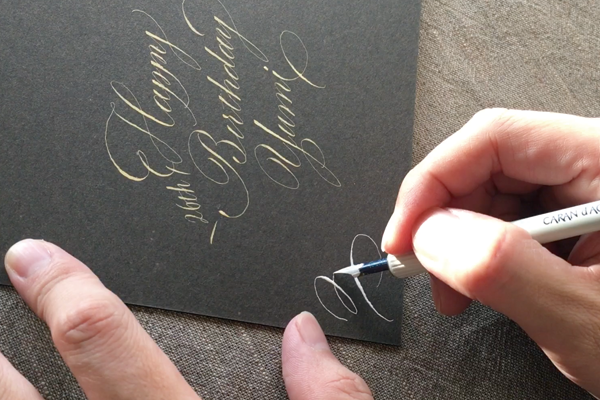 Happy
26th Birthday
Yumi
CARAN d'AC